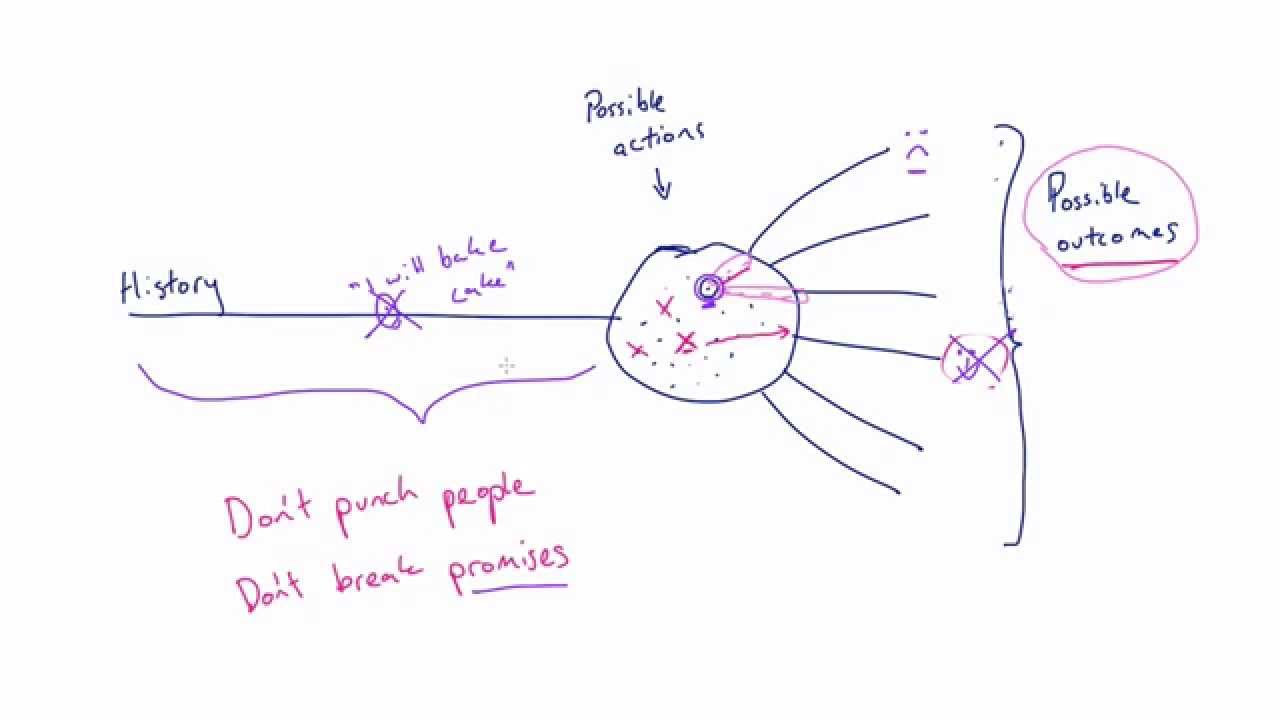 Possible
actions
Possible
outcomes
History
"I will bake
cake"
Don't punch people
Don't break promises